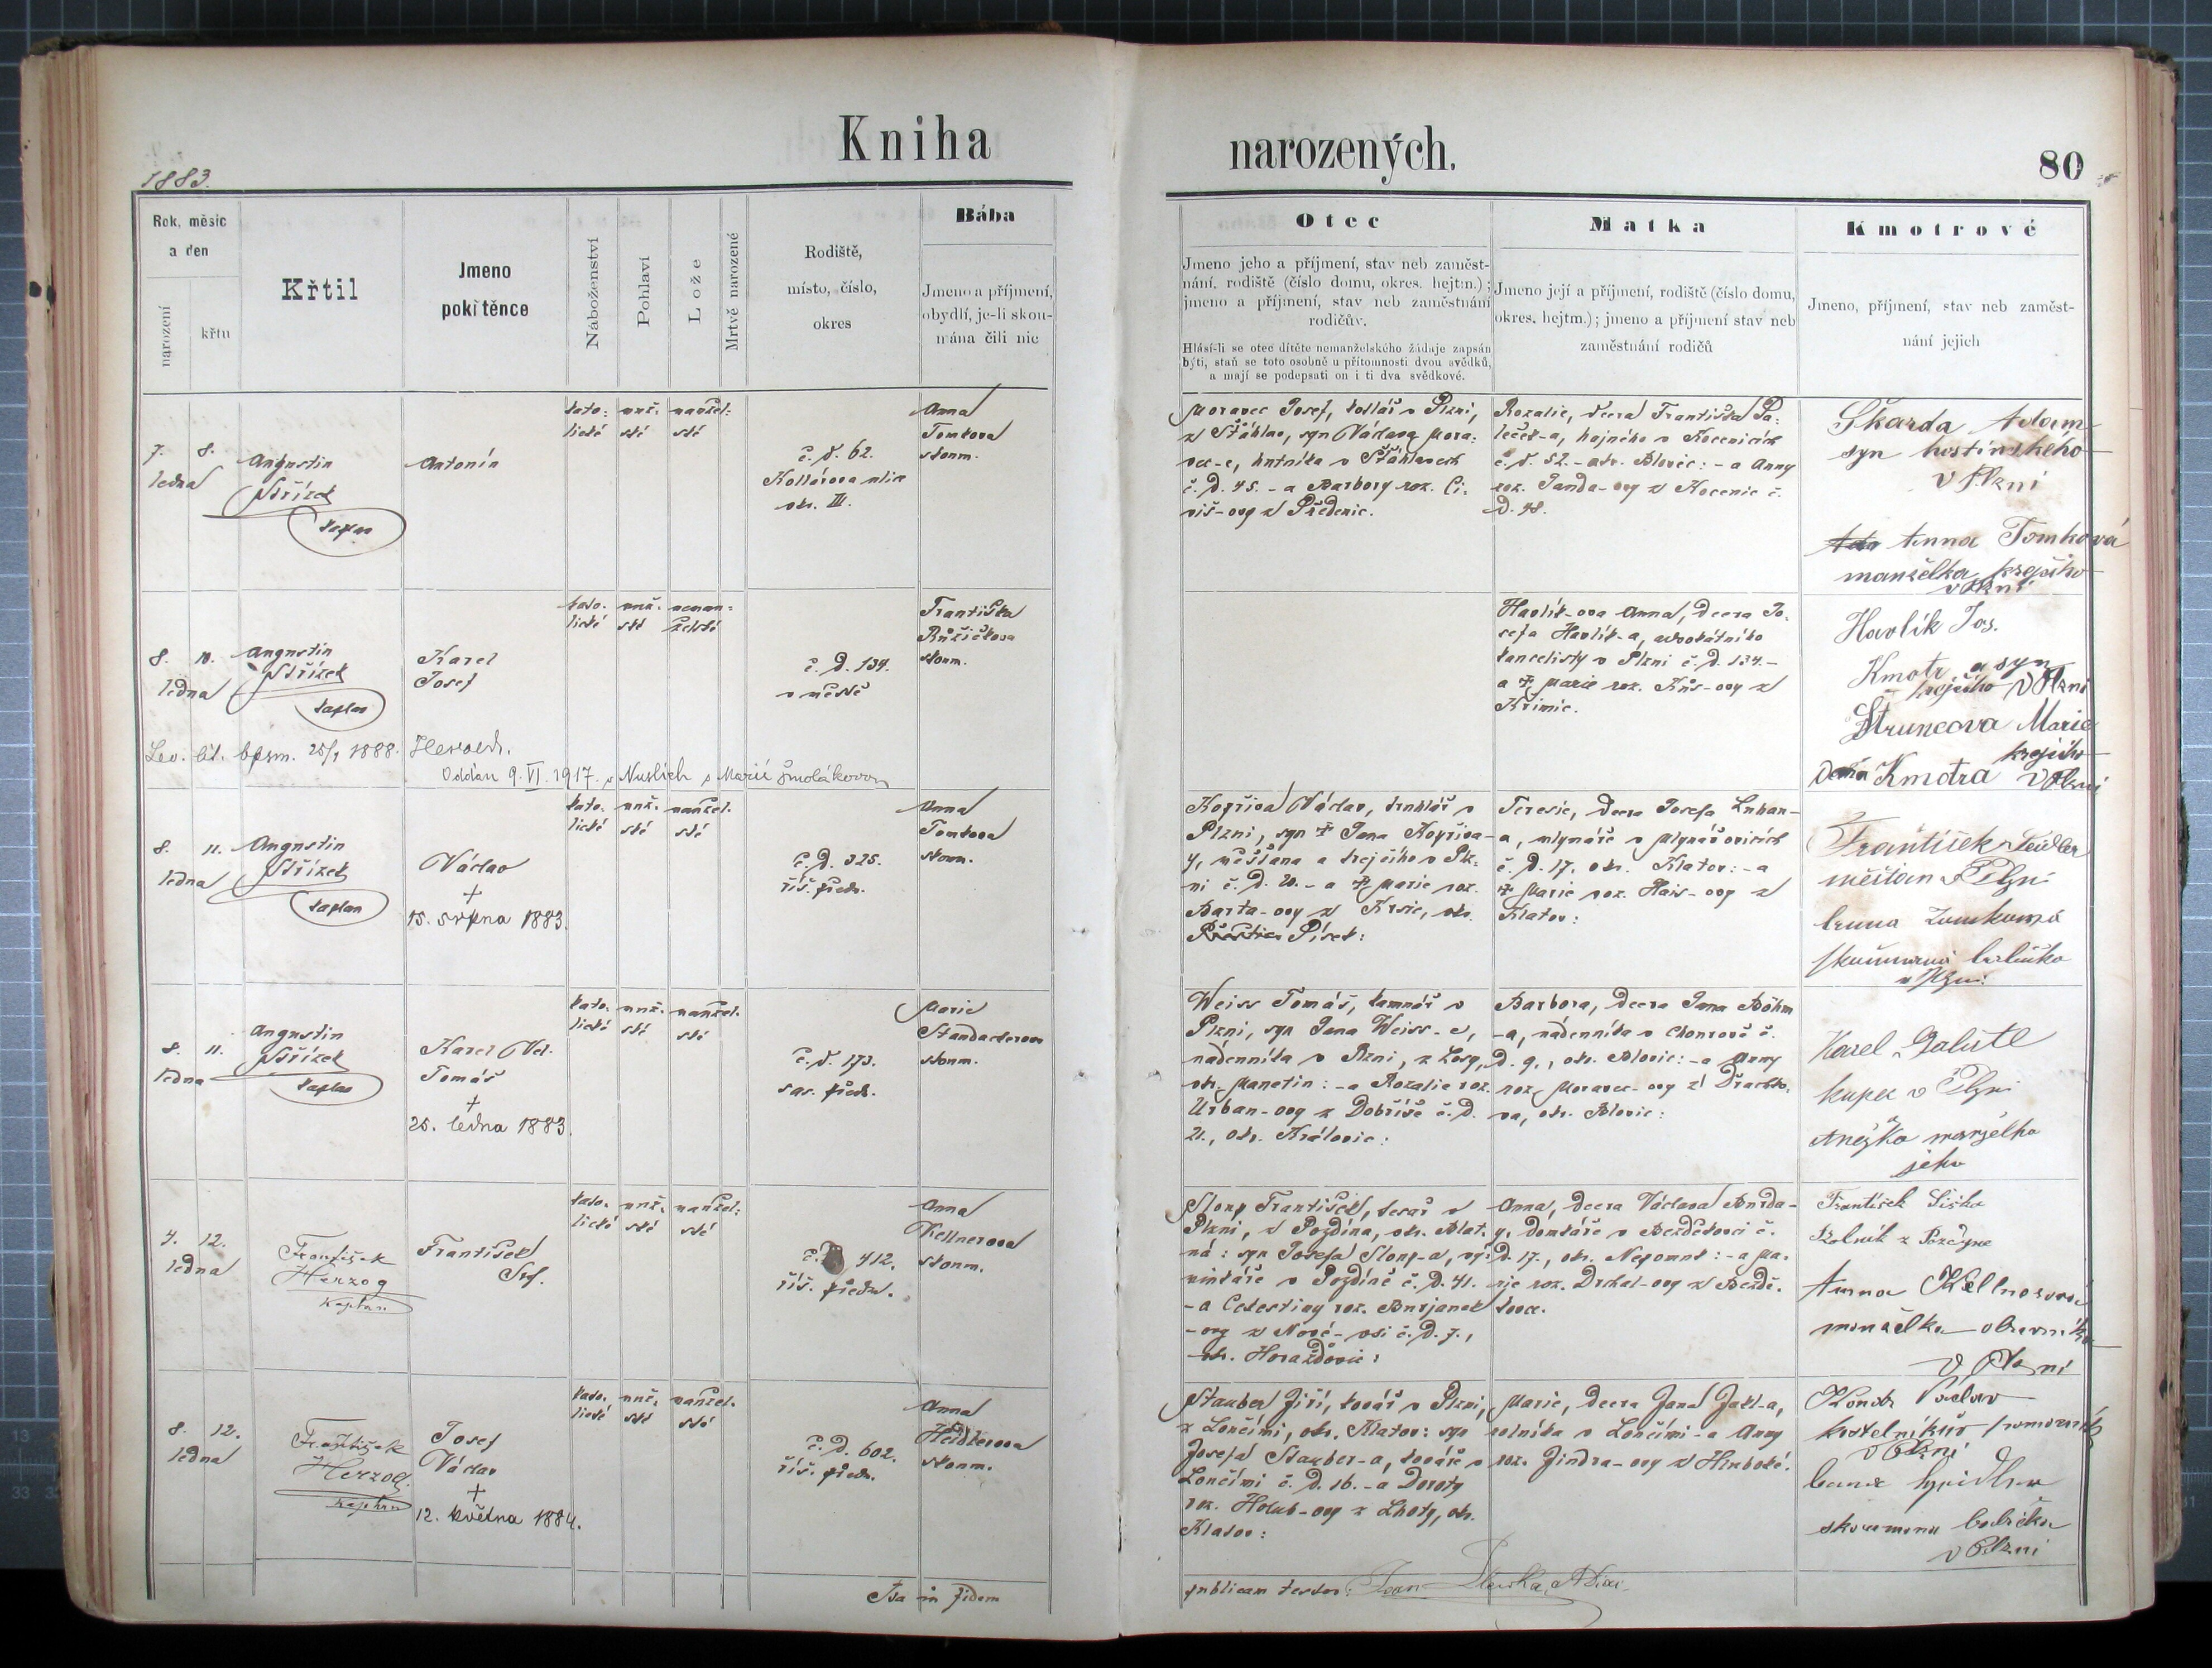 Kniha
narozených.
80
1883.
Rok, měsíc
a den
narození
křtu
Křtil
Jmeno
pokřtěnce
Náboženství
Pohlaví
Lože
Mrtvě narozené
Rodiště,
místo, číslo,
okres
Bába
Jmeno a příjmení,
obydlí, je-li skou-
mána čili nic
Otec
Jmeno jeho a příjmení, stav neb zaměst-
nání, rodiště (číslo domu, okres. hejtm.);
jmeno a příjmení, stav neb zaměstnání
rodičův.
Hlásí-li se otec dítěte nemanželského žádaje zapsán
býti, staň se toto osobně u přítomnosti dvou svědků,
a mají se podepsati on i ti dva svědkové.
Matka
Jmeno její a příjmení, rodiště (číslo domu,
okres. hejtm.); jmeno a příjmení stav neb
zaměstnání rodičů
Kmotrové
Jmeno, příjmení, stav neb zaměst-
nání jejich
7. 8.
ledna
Augustin
Střízek
kaplan
Antonín
kato-
lické
muž-
ské
manžel-
ské
č. d. 62.
Kollárova ulice
okr. III.
Anna
Tomkova
skoum.
Moravec Josef, kotlář v Plzni,
z Šťáhlav, syn Václava Mora-
vec-e, hutníka v Šťáhlavech
č. d. 45. - a Barbory roz.
z Předenic.
Rozalie, dcera Františka Pa-
leček-a, hajného v Kocenicích
č. d. 52. - okr. Blovic: - a Anny
roz. Panda-ovy z Kocenic č.
d. 48.
Škarda Adam
syn hostinského
v Plzni
Anna Tomková
manželka krejčího
v Plzni
8. 10.
ledna
Augustin
Střízek
kaplan
Karel
Josef
kato-
lické
muž-
ské
neman-
želské
č. d. 134.
v městě
Františka
Růžičkova
skoum.
Havlík-ova Anna, dcera Jo-
sefa Havlík-a, advokátního
kancelisty v Plzni č. d. 134. -
a † Marie roz. Kůs-ovy z
Křimic.
Havlík Jos.
Kmotr a syn
krejčího v Plzni
Štruncova Marie
krejčího
Kmotra v Plzni
Lev. lit. bpsm. 25/1 1888. Herold.
Oddán 9. VI. 1917 v Nuslích s Marií Smolákovou
8. 11.
ledna
Augustin
Střízek
kaplan
Václav
†
15. srpna 1883.
kato-
lické
muž-
ské
manžel-
ské
č. d. 325.
říš. předm.
Anna
Tomkova
skoum.
Kopřiva Václav, truhlář v
Plzni, syn † Jana Kopřiva-
y, měšťana a krejčího v Plz-
ni č. d. 20. - a † Marie roz.
Barta-ovy z Krsic, okr.
Písek:
Teresie, dcera Josefa Luhan-
a, mlynáře v Mlynářovicích
č. d. 17, okr. Klatov: - a
† Marie roz. Hais-ovy z
Klatov:
František Seidler
měšťan v Plzni
Anna Tomková
skoumaná babička
v Plzni.
8. 11.
ledna
Augustin
Střízek
kaplan
Karel Vel.
Tomáš
†
25. ledna 1883.
kato-
lické
muž-
ské
manžel-
ské
č. d. 173.
sas. předm.
Marie
skoum.
Weiss Tomáš, kamnář v
Plzni, syn Jana Weiss-e,
nádenníka v Plzni, z Losy,
okr. Manetin: - a Rozalie roz.
Urban-ovy z Dobříše č. d.
21., okr. Kralovic:
Barbora, dcera Jana Böhm
-a, nádenníka v Chourově č.
d. 9., okr. Blovic: - a Anny
roz. Moravec-ovy z Drachko-
va, okr. Blovic:
Karel
kupec v Plzni
Anežka manželka
jeho
7. 12.
ledna
František
Herzog
kaplan
František
Ser.
kato-
lické
muž-
ské
manžel-
ské
č. d. 412.
říš. předm.
Anna
Kellnerova
skoum.
Sloup František, tesař v
Plzni, z Pozdína, okr. Blat-
ná: syn Josefa Sloup-a, vý-
minkáře v Pozdíně č. d. 41.
- a Celestiny roz. Burjanek
-ovy z Nové-vsi č. d. 7.,
okr. Horažďovic:
Anna, dcera Václava Burda-
y, domkáře v Bezděkovci č.
d. 17., okr. Nepomuk: - a Ma-
rie roz. Drskal-ovy z Bezdě-
kovce.
František Šiška
Rolník z Pozdyne
Anna Kellnerová
manželka obuvníka
v Plzni
8. 12.
ledna
František
Herzog.
kaplan
Josef
Václav
†
12. května 1884.
kato-
lické
muž-
ské
manžel-
ské
č. d. 602.
říš. předm.
Anna
Heidlerova
skoum.
Stauber Jiří, kovář v Plzni,
z Lončími, okr. Klatov: syn
Josefa Stauber-a, kováře v
Lončími č. d. 16. - a Doroty
roz. Holub-ovy z Lhoty, okr.
Klatov:
Marie, dcera Jana Jakl-a,
rolníka v Lončími - a Anny
roz. Jindra-ovy z Hluboké.
Václav
kostelníkův pomocník
v Plzni
skoumana babička
v Plzni
Ita in fidem
publicam testor: